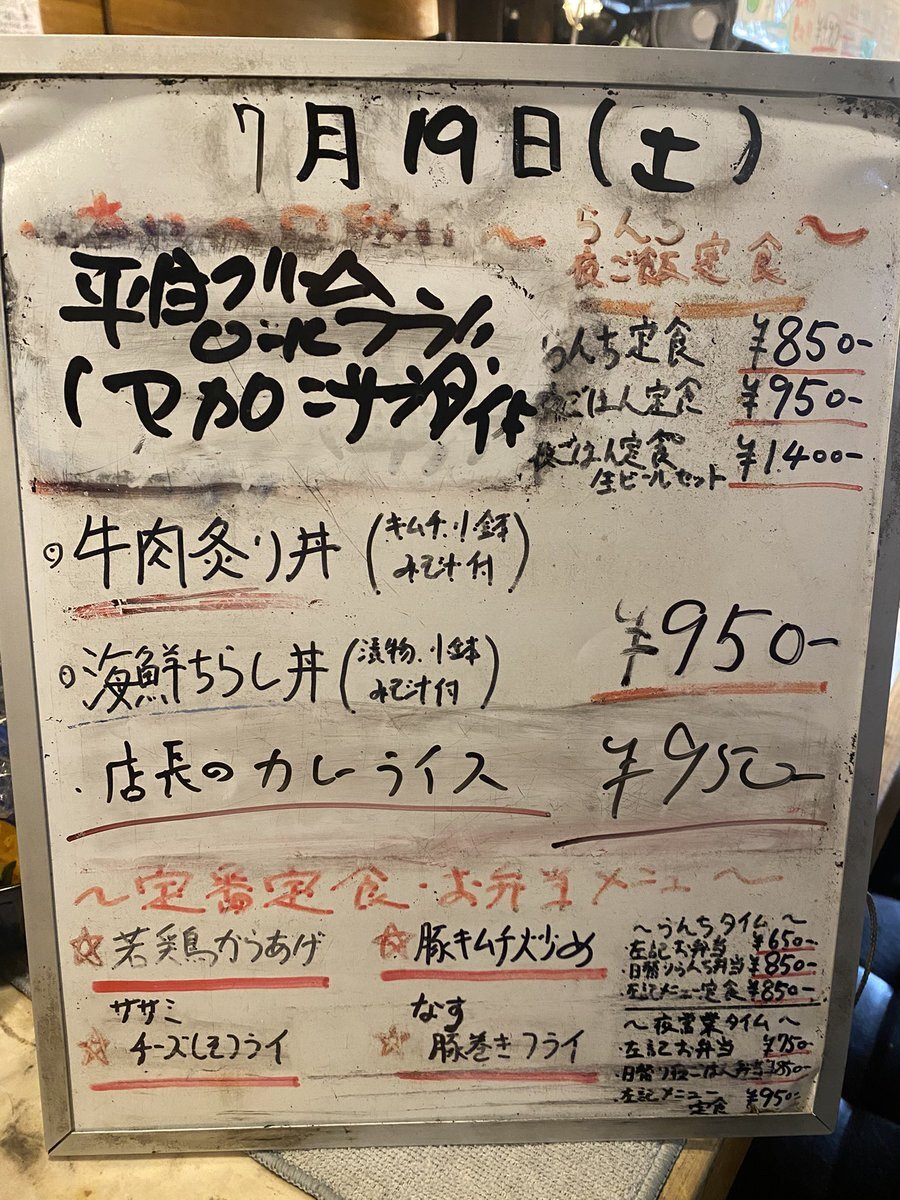 7月19日(土)
らんち
夜ご飯定食
らんち定食 ¥850-
夜ごはん定食 ¥950-
夜ごはん定食
生ビールセット ¥1.400-
牛肉炙り丼 (キムチ、小鉢
みそ汁付)
¥950-
海鮮ちらし丼 (漬物、小鉢
みそ汁付)
店長のカレーライス ¥950-
~定番定食・お弁当メニュー~
☆若鶏からあげ
☆豚キムチ炒め
ササミ
☆チーズしそフライ
なす
☆豚巻きフライ
~らんちタイム~
左記お弁当 ¥650-
日替りらんち弁当 ¥850-
左記メニュー定食 ¥850-
~夜営業タイム~
左記お弁当 ¥750-
日替り夜ごはん弁当 ¥850-
左記メニュー
定食 ¥950-